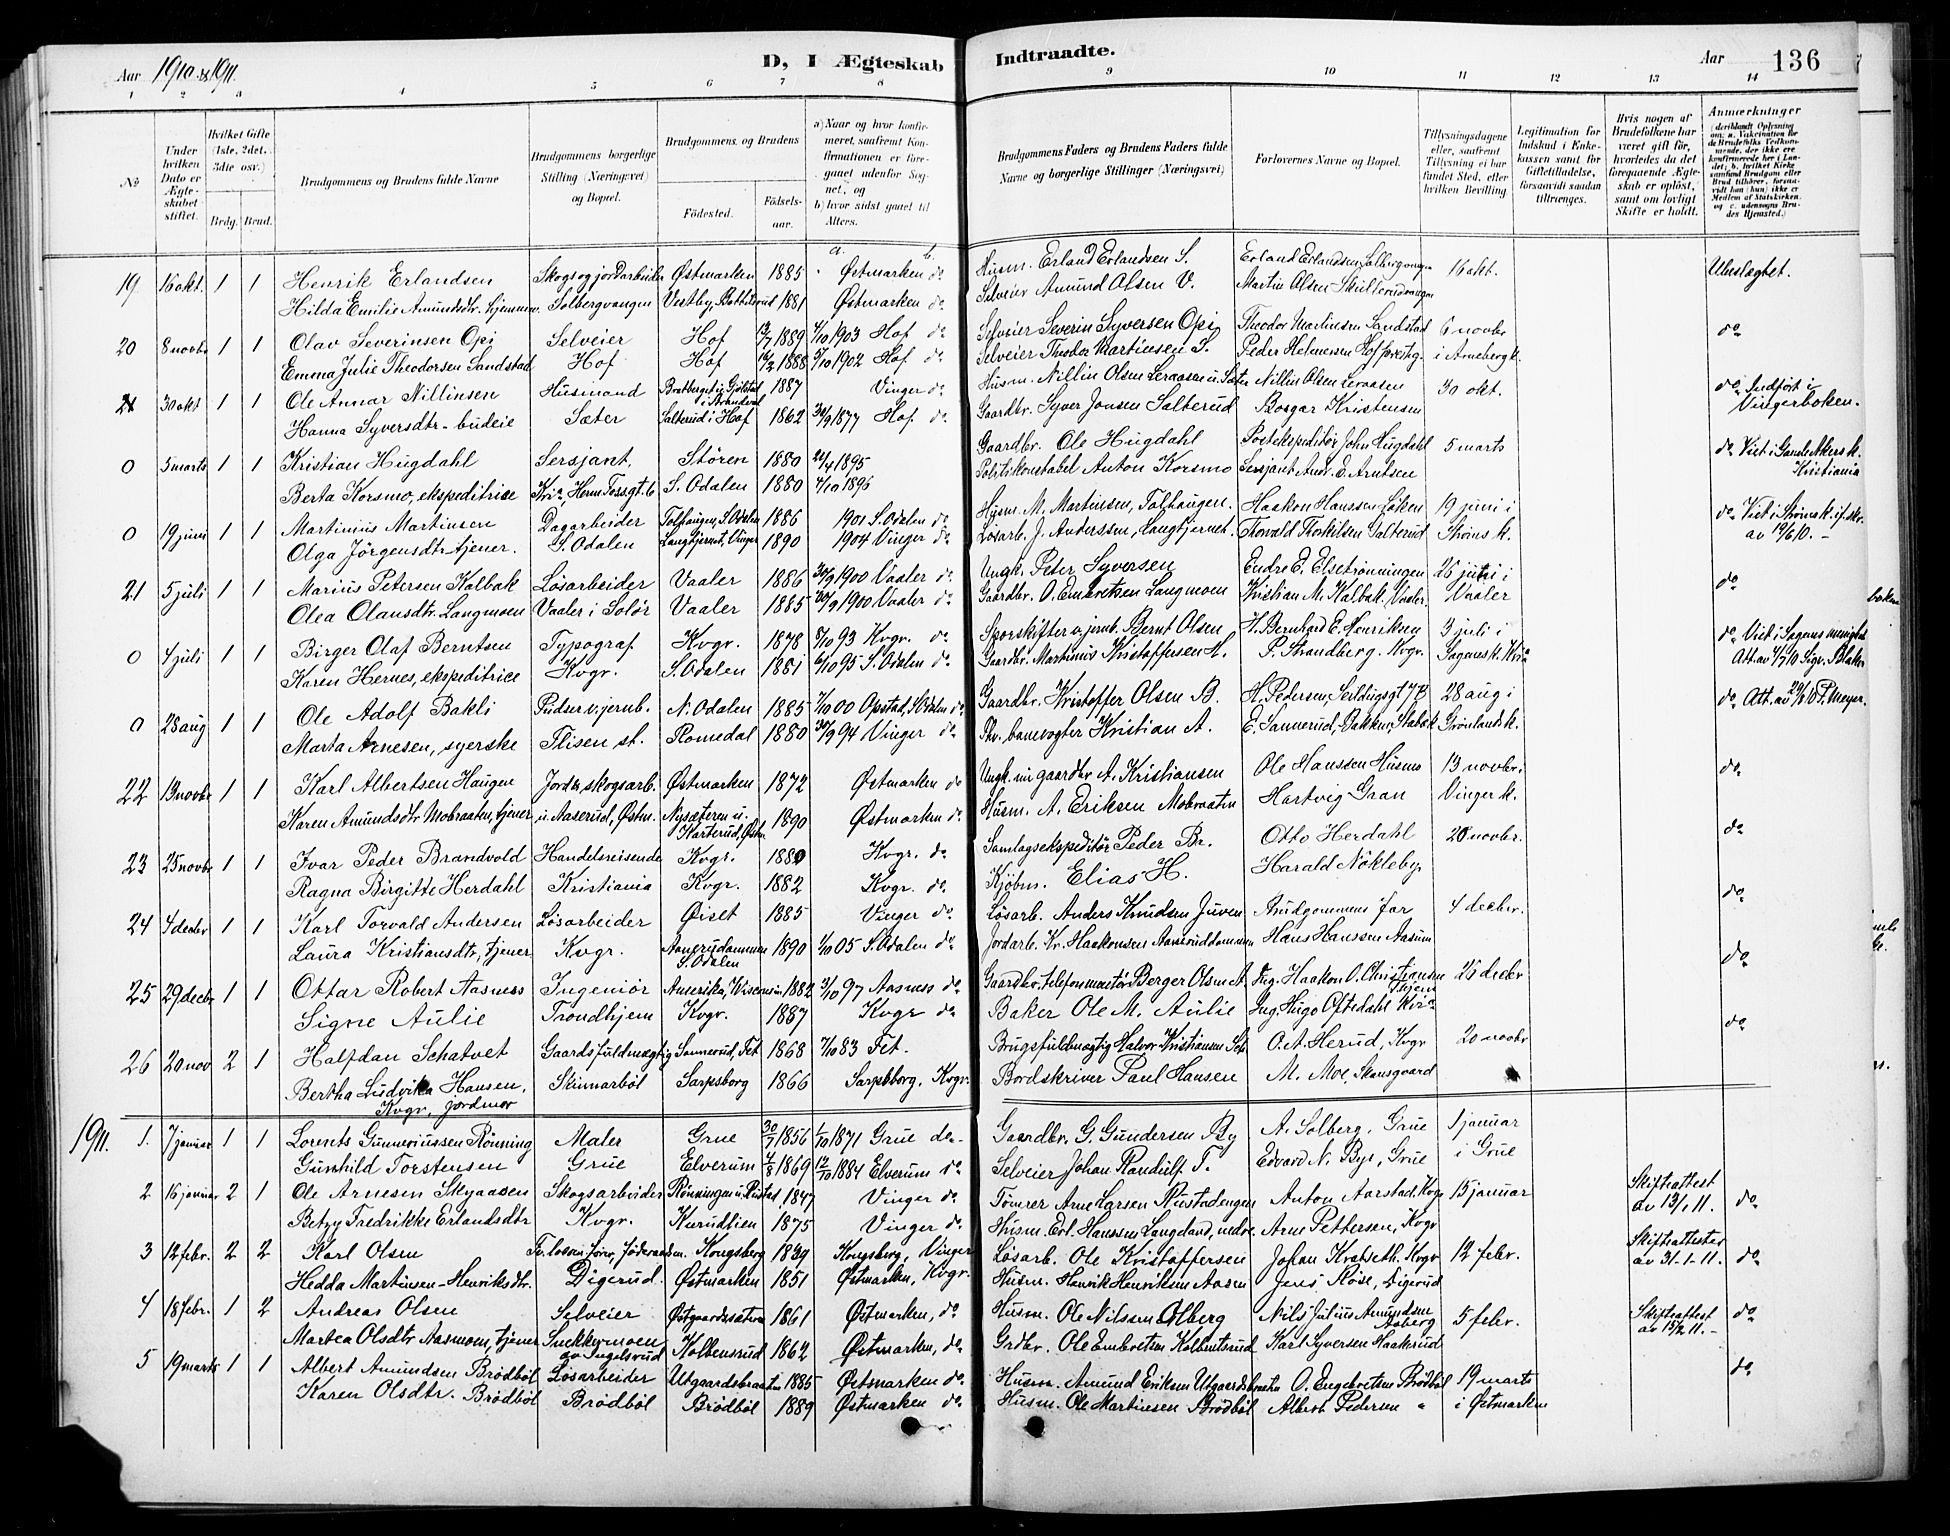 Aar 1910 & 1911.
D, I Ægteskab Indtraadte.
Aar 136
1 2 3 4 5 6 7 8 9 10 11 12 13 14
No
Under hvilken Dato er Ægteskabet stiftet.
Hvilket Gifte (1ste, 2det, 3die osv.)
Brdg. Brud.
Brudgommens og Brudens fulde Navne
Brudgommens borgerlige Stilling (Næringsvei) og Bopæl.
Brudgommens og Brudens
Fødested. Fødselsaar.
a) Naar og hvor konfirmeret, saafremt Konfirmationen er foregaaet udenfor Sognet, og
b) hvor sidst gaaet til Alters.
Brudgommens Faders og Brudens Faders fulde Navne og borgerlige Stillinger (Næringsvei)
Forlovernes Navne og Bopæl.
Tillysningsdagene eller, saafremt Tillysning ei har fundet Sted, efter hvilken Bevilling.
Legitimation for Indskud i Enkekassen samt for Giftetilladelse, forsaavidt saadan tiltrænges.
Hvis nogen af Brudefolkene har været gift før, hvorledes da det foregaaende Ægteskab er opløst, samt om lovligt Skifte er holdt.
Anmærkninger
a. b.
19 16 okt. 1 1 Henrik Erlandsen Skogs og jordarbeider Østmarken 1885 Østmarken do Husm. Erland Erlandsen S. Erland Erlandsen Solbergvangen 16 okt. Ubeslægtet.
Hilda Emilie Amundsdtr. hjemmev. Solbergvangen Vestby, 1881 Østmarken do Selveier Amund Olsen V. Martin Olsen
20 8 novbr 1 1 Olav Severinsen Opi Selveier Hof 1889 1903 Hof do Selveier Severin Syversen Opi Theodor Martinsen Sandstad 6 novbr do
Emma Julie Theodorsen Sandstad Hof Hof 1888 1902 Hof do Selveier Theodor Martinsen S. Peder Helmersen Hof i Arneberg k.
21 30 okt 1 1 Ole Annar Nillinsen Husmand i Strandval 1887 Vinger do Husm. Nillin Olsen Leraasen u. Sæter Nillin Olsen Leraasen 30 okt. do Indført i Vingerboken.
Hanna Syversdtr - budeie Sæter Salterud i Hof 1862 30/9 1877 Hof. do Gaardbr. Syver Jonsen Salterud Bosgar Kristensen
0 5 marts 1 1 Kristian Hugdahl Sersjant. Støren 1880 1895 Gaardbr. Ole Hugdahl Postekspeditør John Hugdahl 5 marts do Viet i Gamle Akers k. Kristiania
Berta Korsmo, ekspeditrice Kria, Herm Fossgt. 6 S. Odalen 1880 4/10 1896 Politikonstabel Anton Korsmo Sersjant Andr. E. Arntsen
0 19 juni 1 1 Martinius Martinsen Dagarbeider Tolhaugen, S. Odalen 1886 1901 S. Odalen do Husm. M. Martinsen, Tolhaugen. Haakon Hanssen Løken 19 juni i do Viet i Strøms k. if. skr.
Olga Jörgensdtr tjener. S. Odalen Langtjernet, Vinger 1890 1904 Vinger do Løsarb. J. Anderssen, Langtjernet. Torvald Torkilsen Salterud Strøms k. av 19/6 10. -
21 5 juli 1 1 Marius Petersen Kalbak Løsarbeider Vaaler 1886 30/9 1900 Vaaler do Ungk. Peter Syversen Endre E. Elsetrønningen 26 juni i do
Olea Olansdtr. Langmoen Vaaler i Solør Vaaler 1885 30/9 1900 Vaaler do Gaardbr. O. Embretsen Langmoen Kristian M. Kalbak. Vaaler. Vaaler
0 4 juli 1 1 Birger Olaf Berntsen Typograf Kvgr. 1878 8/10 93 Kvgr. do Sporskifter v. jernb. Bernt Olsen H. Bernhard E. Henriksen 3 juli i do Viet i Sagens menighet
Karen Hernes, ekspeditrice Kvgr. S. Odalen 1881 6/10 95 S. Odalen do Gaardbr. Martinius Kristoffersen H. P. Strandberg. Kvgr. Sagenes k. Kria Att. av 4/7 10 Sigv. Blaker
0 28 aug 1 1 Ole Adolf Bakli Pudser v. jernb. N. Odalen 1885 7/10 00 Opstad, S. Odalen do Gaardbr. Kristoffer Olsen B. H. Pedersen, 28 aug i do Att. av 29/8 10 P. Meyer.
Marta Arnesen, syerske Flisen st. Romedal 1880 30/9 94 Vinger do Fhv. banevogter Kristian A. E. Sannerud, Bakken, Stabæk Grønlands k.
22 13 novbr 1 1 Karl Albertsen Haugen Jord & skogsarb. Østmarken 1872 Østmarken do Ungk. nu gaardbr A. Kristiansen Ole Hanssen Husmo 13 novbr i do
Karen Amundsdtr Mobraaten, tjener u. Aaserud, Østm. Nysæteren u. Harterud, Østm 1890 Østmarken do Husm. A. Eriksen Mobraaten Hartvig Gran Vinger k.
23 25 novbr 1 1 Ivar Peder Brandvold Handelsreisende Kvgr. 1880 Kvgr. do Samlagsekspeditør Peder Br. Otto Herdahl 20 novbr. do
Ragna Birgitte Herdahl Kristiania Kvgr. 1882 Kvgr. do Kjøbm. Elias H. Harald Nökleby,
24 4 decbr 1 1 Karl Torvald Andersen Løsarbeider Øiset 1885 Vinger do Løsarb. Anders Knudsen Juven Brudgommens far 4 decbr. do
Laura Kristiansdtr, tjener Kvgr. Aaneruddammen S. Odalen 1890 1/10 05 S. Odalen do Jordarb. Kr. Haakonsen Aaneruddammen Hans Hanssen Aasum
25 29 decbr 1 1 Ottar Robert Aasness Ingeniør Amerika, Wisconsin 1882 3/10 97 Aasness do Gaardbr, telefonmontør Berger Olsen A. Ing. Haakon O. Christiansen Thjem 26 decbr do
Signe Aulie Trondhjem Kvgr. 1887 Kvgr do Baker Ole M. Aulie Ing. Hugo Oftedahl Kria
26 20 nov 2 1 Halfdan Schatvet Gaardsfuldmægtig Sannerud, Fet 1868 7/10 83 Fet. Brugsfuldmægtig Halvor Kristiansen Sch. O. A. Herud, Kvgr 20 novbr do
Bertha Ludvika Hansen, Kvgr, jordmor Skinnarböl Sarpsborg 1866 Sarpsborg. Kvgr. Bordskriver Paul Hansen M. Moe, Skansgaard
1911. 1. 7 januar 1 1 Lorents Gunneriussen Rönning Maler Grue 30/7 1856 1/10 1871 Grue do - Gaardbr. G. Gundersen By A. Solberg, Grue 1 januar
Gunhild Torstensen Grue Elverum 4/8 1869 12/10 1884 Elverum do Selveier Johan Randulf T. Edvard N. Bye, Grue i Grue
2 16 januar 2 1 Ole Arnesen Skyaasen Skogsarbeider Rønningen u. Rustad 1847 Vinger do Tømrer Arne Larsen Rustadengen Anton Aarstad, Kvgr 15 januar Skifteattest av 13/1 11. do
Betzy Fredrikke Erlandsdtr Kvgr. Kurudlien 1875 Vinger do Husm. Erl. Hanssen Langeland, nedre Arne Pettersen, Kvgr
3 12 febr. 2 2 Karl Olsen Kongsberg 1839 Kongsberg, Vinger Løsarb. Ole Kristoffersen Johan Kvatseth. Kvgr 12 febr. Skifteattester av 31-1-11. do
Hedda Martinsen - Henriksdtr. Digerud. Østmarken 1851 Østmarken, Kvgr. Husm. Henrik Henriksen Aasen Jens Röse, Digerud
4 18 febr. 1 2 Andreas Olsen Selveier Østgaardssæteren 1861 Østmarken, do Husm. Ole Nilssen Olberg Nils Julius Amundsen Aaberg 5 febr. Skifteattest av 15/2 11. - do
Martea Olsdtr Aasmoen, tjener Snekkermoen av Ingelsrud Kolbensrud 1862 Østmarken, do Grdbr. Ole Embretsen Kolbentsrud Karl Syversen Haakerud
5 19 marts 1 1 Albert Amundsen Brödböl Løsarbeider Utgaardsbraaten 1885 Østmarken do Husm. Amund Eriksen Utgaardsbraaten O. Engebretsen Brödböl 19 marts do
Karen Olsdtr. Brödböl Brödböl Brödböl 1889 Østmarken do Husm. Ole Martinsen Brödböl Albert Pedersen " i Østmarken